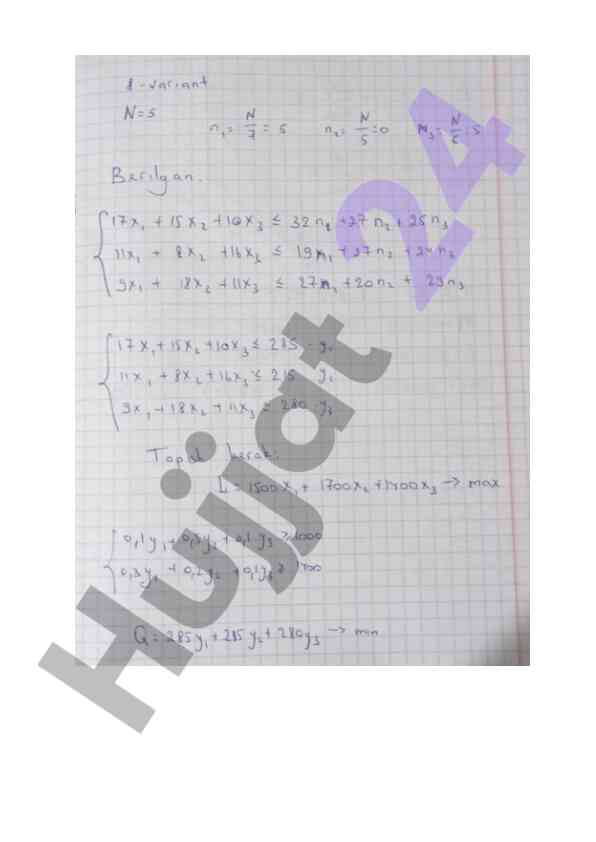 1-variant
N=5
n₁= N/7 = 5 n₂= N/5 =0 n₃= N/6 =5
Berilgan.
17x₁ + 15x₂ + 10x₃ ≤ 32n₁ +27n₂ + 25n₃
11x₁ + 8x₂ +16x₃ ≤ 19n₁ +27n₂ +24n₃
9x₁ + 18x₂ +11x₃ ≤ 27n₁ +20n₂ + 29n₃
17x₁+15x₂+10x₃ ≤ 285 y₁
11x₁ + 8x₂+16x₃ ≤ 215 y₂
9x₁ + 18x₂ + 11x₃ ≤ 280 y₃
Topish kerak:
L=1500x₁ + 1700x₂ +1400x₃ → max
0,1y₁ + 0,3y₂ + 0,1y₃ ≥ 1000
0,3y₁ + 0,2y₂ +0,1y₃ ≥
Q=285y₁+215y₂+280y₃ → min
Hujjat 24